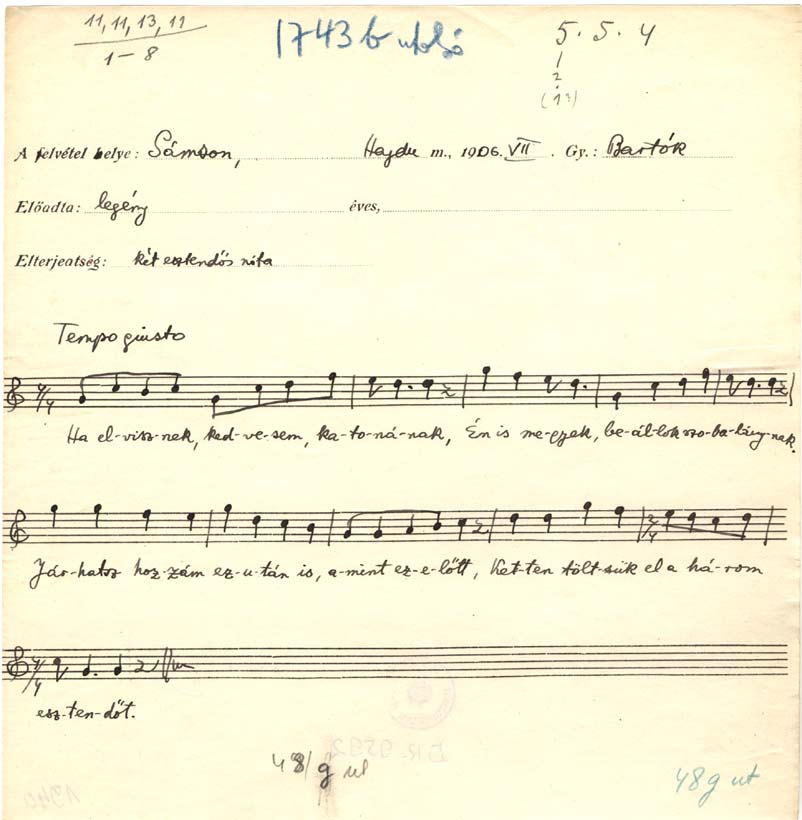 11, 11, 13, 11
1–8
1743 b utolsó
5. 5. 4
1
2
(1?)
A felvétel helye: Sámson, Hajdu m., 1906. VII . Gy.: Bartók
Előadta: legény éves,
Elterjeatség: két esztendős nóta
Tempo giusto
4/4
Ha el-visz-nek, ked-ve-sem, ka-to-ná-nak, Én is me-gyek, be-ál-lok szo-ba-lány-nak.
Jár-hatsz hoz-zám ez-u-tán is, a-mint ez-e-lőtt, Ket-ten tölt-sük el a há-rom
2/4
4/4
esz-ten-dőt.
48/g ut
48 g ut